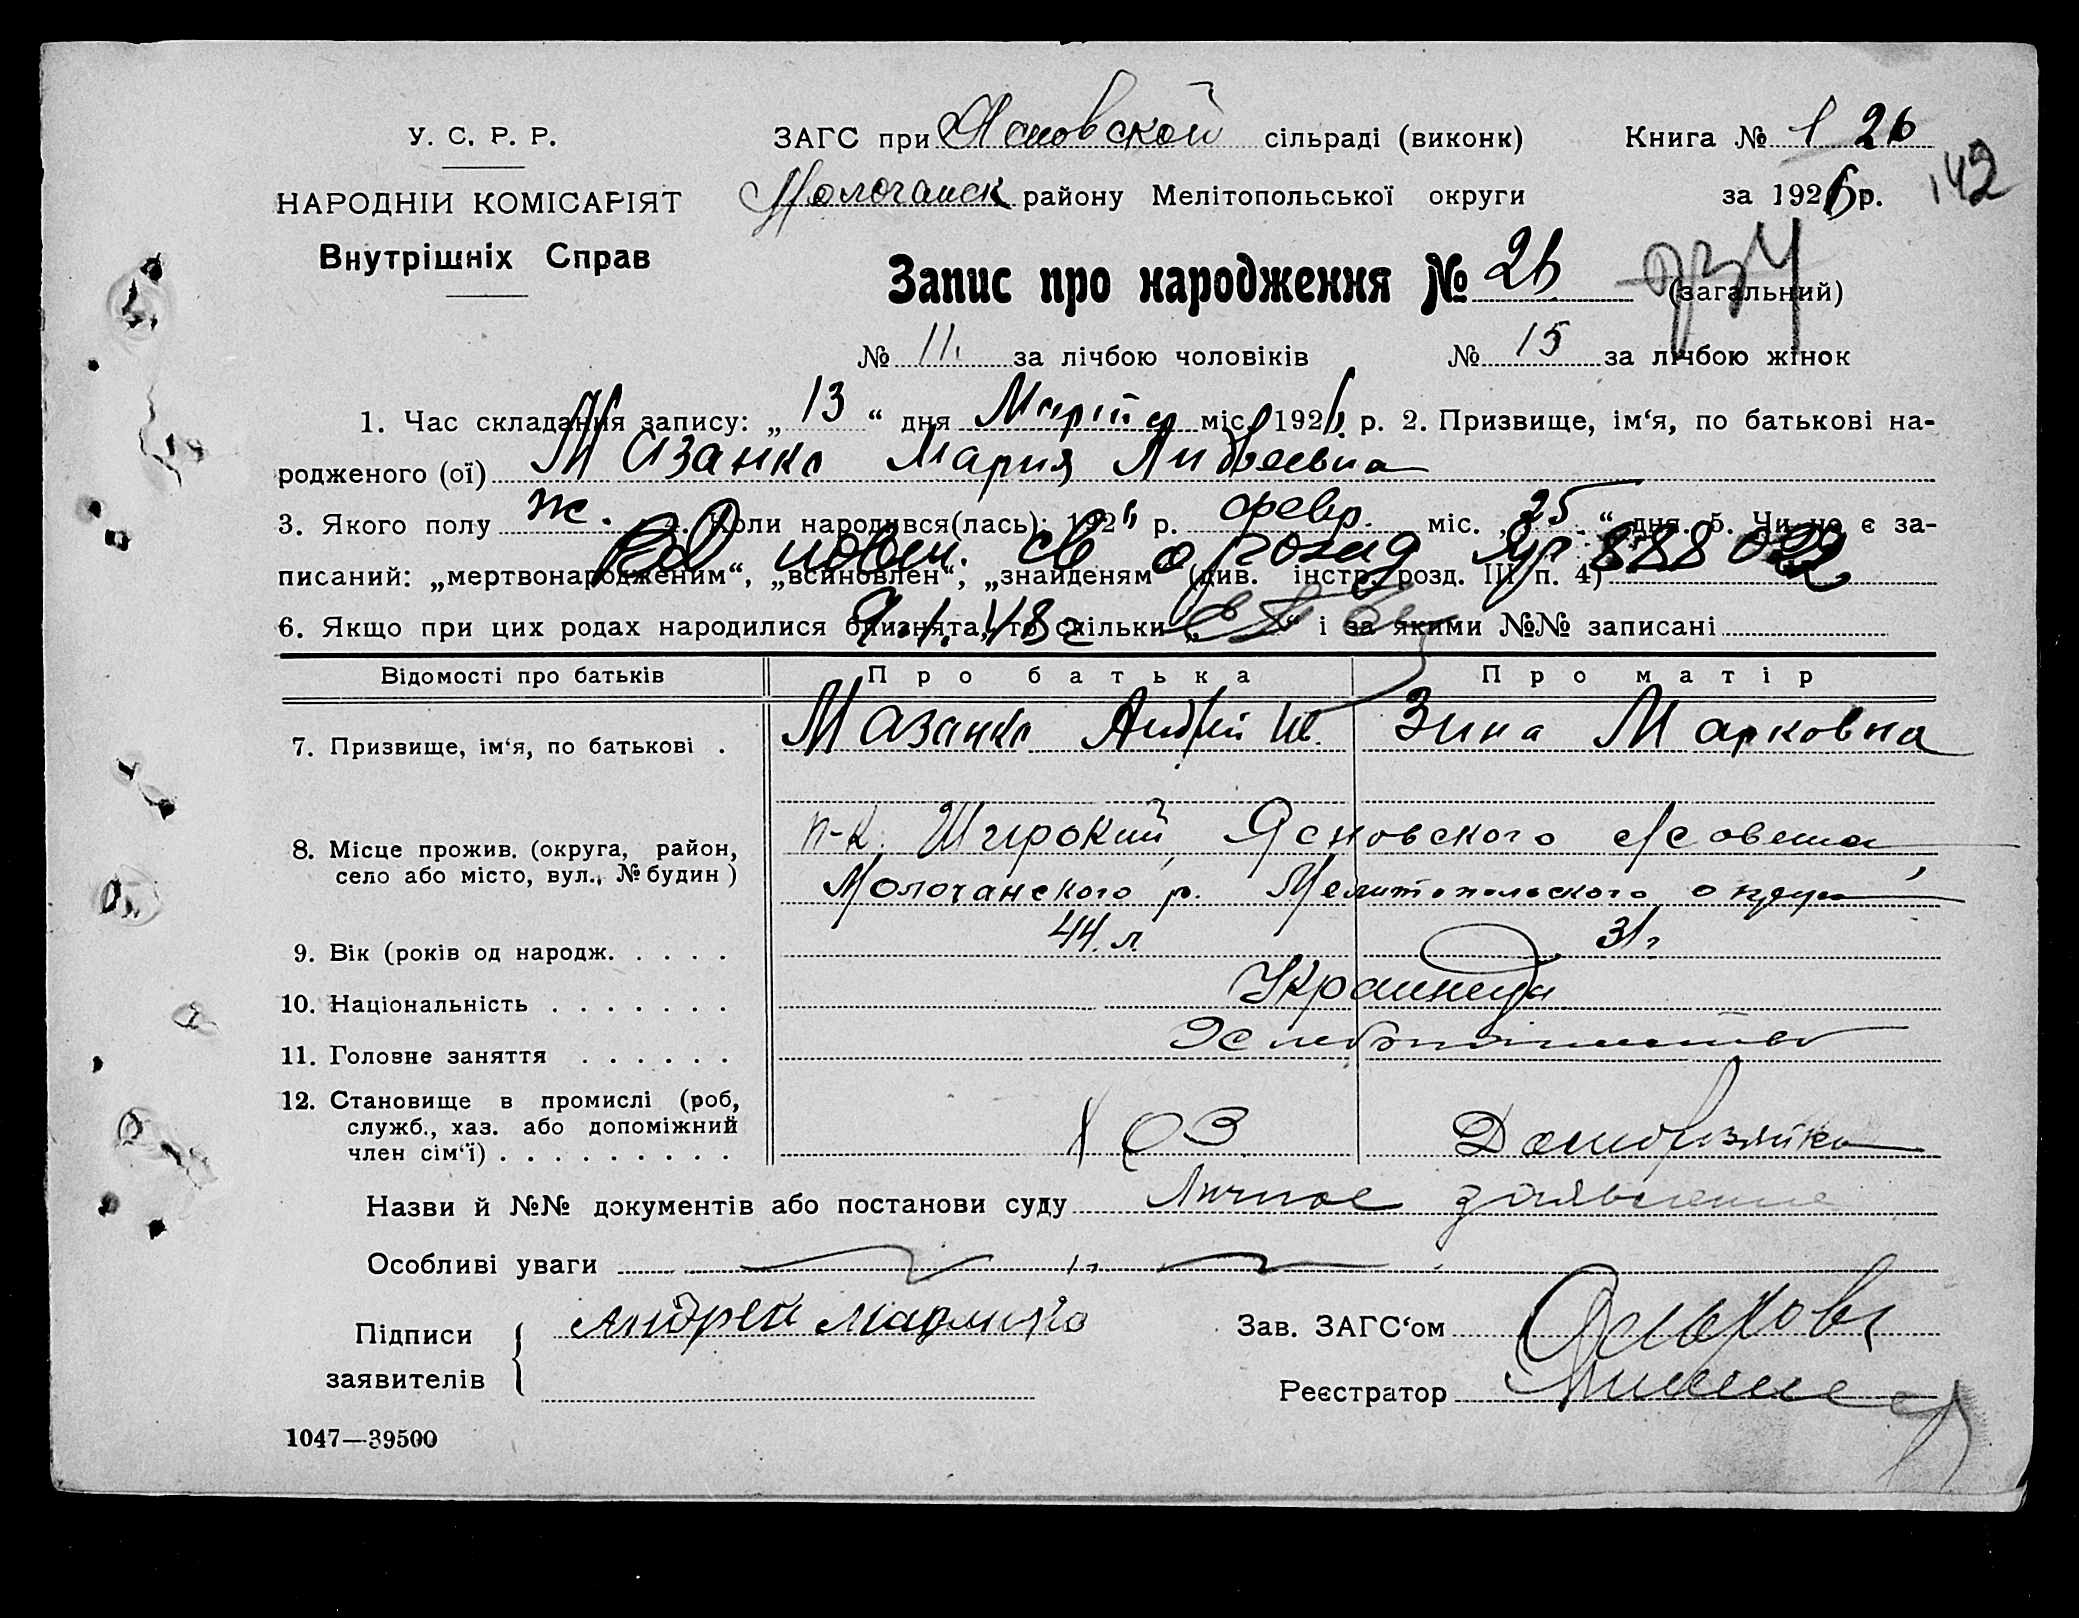 У. С. Р. Р.
НАРОДНІЙ КОМІСАРІЯТ
Внутрішніх Справ
ЗАГС при Ясновской сільраді (виконк) Книга № 1 26
Молочанск району Мелітопольської округи за 1926 р. 142
Запис про народження № 26 (загальний)
№ 11. за лічбою чоловіків № 15 за лічбою жінок
1. Час складання запису: „ 13 “ дня Марта міс. 1926 р. 2. Призвище, ім‘я, по батькові на-
родженого (ої) Мазанко Мария Андреевна
3. Якого полу ж. 4. Коли народився(лась): 1926 р. февр. міс. „ 25 “ дня. 5. Чи не є за-
писаний: „мертвонародженим“, „всиновлен“, „знайденям“ (див. інстр. розд. III п. 4)
6. Якщо при цих родах народилися близнята, то скільки „ “ і за якими №№ записані
Відомості про батьків Про батька Про матір
7. Призвище, ім‘я, по батькові . Мазанко Андрей Зина Марковна
8. Місце прожив. (округа, район, село або місто, вул., № будин ) п-к. Широкий, Ясновского с/совета
Молочанского р. Мелитопольского округа
9. Вік (років од народж. . . . . 44. л. 31 г
10. Національність . . . . . . . Украинцы
11. Головне заняття . . . . . . Хлебопашество
12. Становище в промислі (роб,
служб., хаз. або допоміжний
член сім‘ї) . . . . . . . . . ХОЗ Домохозяйка
Назви й №№ документів або постанови суду Личное заявление
Особливі уваги
Підписи заявителів Андрей Зав. ЗАГС‘ом
Реєстратор
1047—39500